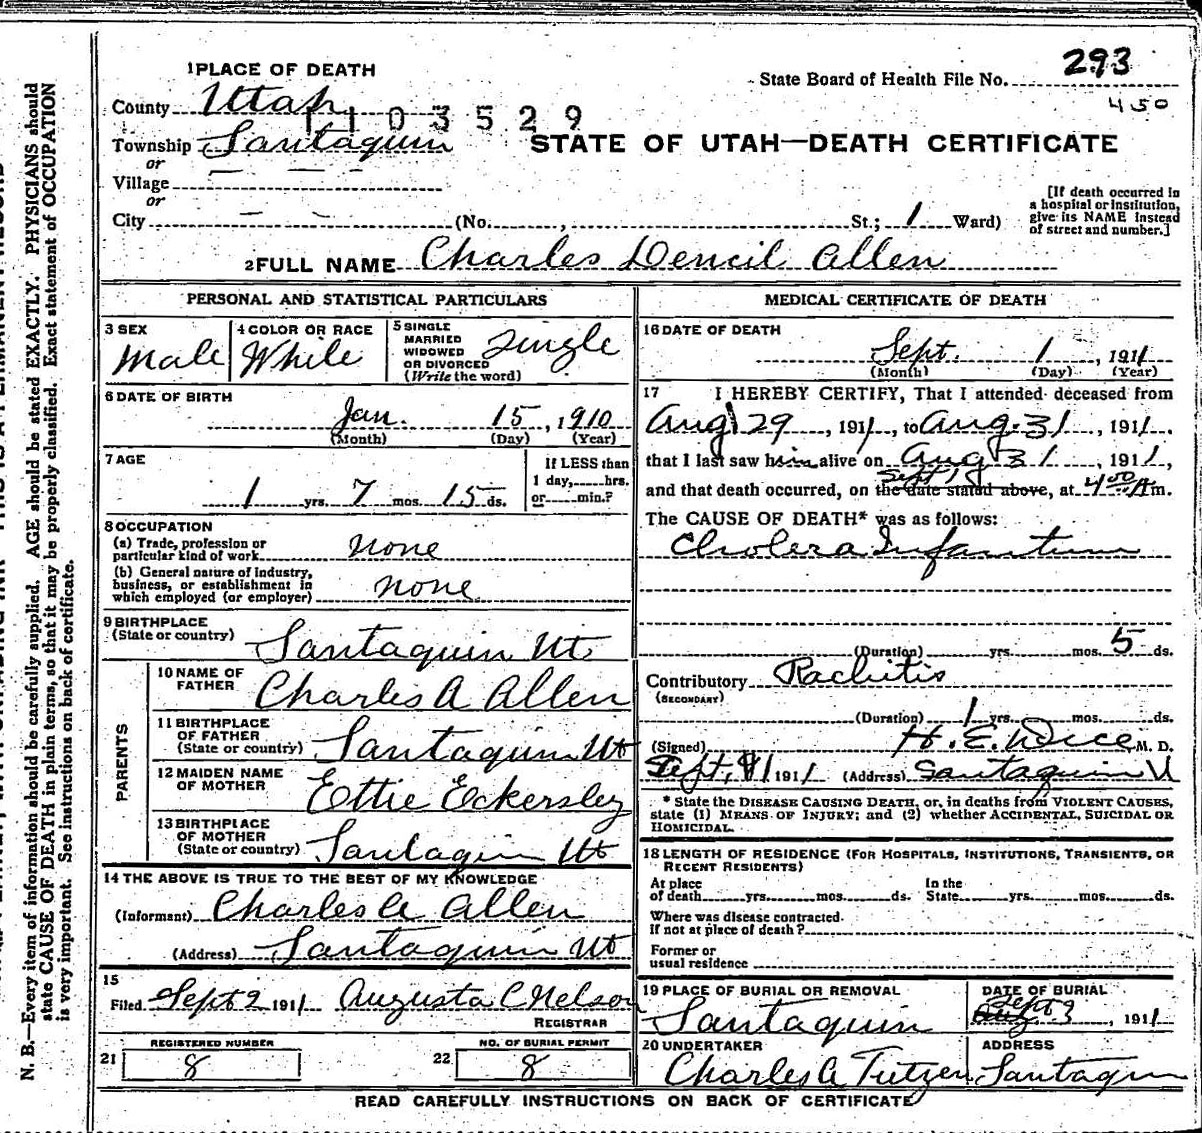 293
1 PLACE OF DEATH
State Board of Health File No.
450
County Utah
1103529
Township Santaquin
STATE OF UTAH—DEATH CERTIFICATE
or
Village
or
City (No. , St.; 1 Ward)
[If death occurred in
a hospital or institution,
give its NAME instead
of street and number.]
2 FULL NAME Charles Dencil Allen
PERSONAL AND STATISTICAL PARTICULARS
3 SEX
Male
4 COLOR OR RACE
White
5 SINGLE
MARRIED
WIDOWED
OR DIVORCED
(Write the word)
Single
6 DATE OF BIRTH
Jan. 15, 1910
(Month) (Day) (Year)
7 AGE
1 yrs. 7 mos. 15 ds.
If LESS than
1 day, hrs.
or min.?
8 OCCUPATION
(a) Trade, profession or
particular kind of work none
(b) General nature of industry,
business, or establishment in
which employed (or employer) none
9 BIRTHPLACE
(State or country) Santaquin Ut
PARENTS
10 NAME OF
FATHER Charles A Allen
11 BIRTHPLACE
OF FATHER
(State or country) Santaquin Ut
12 MAIDEN NAME
OF MOTHER Ettie Eckersley
13 BIRTHPLACE
OF MOTHER
(State or country) Santaquin Ut
14 THE ABOVE IS TRUE TO THE BEST OF MY KNOWLEDGE
(Informant) Charles A Allen
(Address) Santaquin Ut
15
Filed Sept 2 1911 Augusta C Nelson
REGISTRAR
REGISTERED NUMBER
21 8
NO. OF BURIAL PERMIT
22 8
MEDICAL CERTIFICATE OF DEATH
16 DATE OF DEATH
Sept. 1, 1911
(Month) (Day) (Year)
17 I HEREBY CERTIFY, That I attended deceased from
Aug 29, 1911, to Aug. 31, 1911,
that I last saw him alive on Aug 31, 1911,
Sept 1
and that death occurred, on the date stated above, at 4 00 A m.
The CAUSE OF DEATH* was as follows:
Cholera Infantum
(Duration) yrs. mos. 5 ds.
Contributory Rachitis
(SECONDARY)
(Duration) 1 yrs. mos. ds.
(Signed) H. E. Dice M. D.
Sept, 1 1911 (Address) Santaquin U
* State the DISEASE CAUSING DEATH, or, in deaths from VIOLENT CAUSES,
state (1) MEANS OF INJURY; and (2) whether ACCIDENTAL, SUICIDAL OR
HOMICIDAL.
18 LENGTH OF RESIDENCE (FOR HOSPITALS, INSTITUTIONS, TRANSIENTS, OR
RECENT RESIDENTS)
At place
of death yrs. mos. ds.
In the
State yrs. mos. ds.
Where was disease contracted.
If not at place of death?
Former or
usual residence
19 PLACE OF BURIAL OR REMOVAL
Santaquin
DATE OF BURIAL
Sept
Aug 3, 1911
20 UNDERTAKER
Charles A Tietzen
ADDRESS
Santaquin
READ CAREFULLY INSTRUCTIONS ON BACK OF CERTIFICATE
N. B.—Every item of information should be carefully supplied. AGE should be stated EXACTLY. PHYSICIANS should
state CAUSE OF DEATH in plain terms, so that it may be properly classified. Exact statement of OCCUPATION
is very important. See instructions on back of certificate.